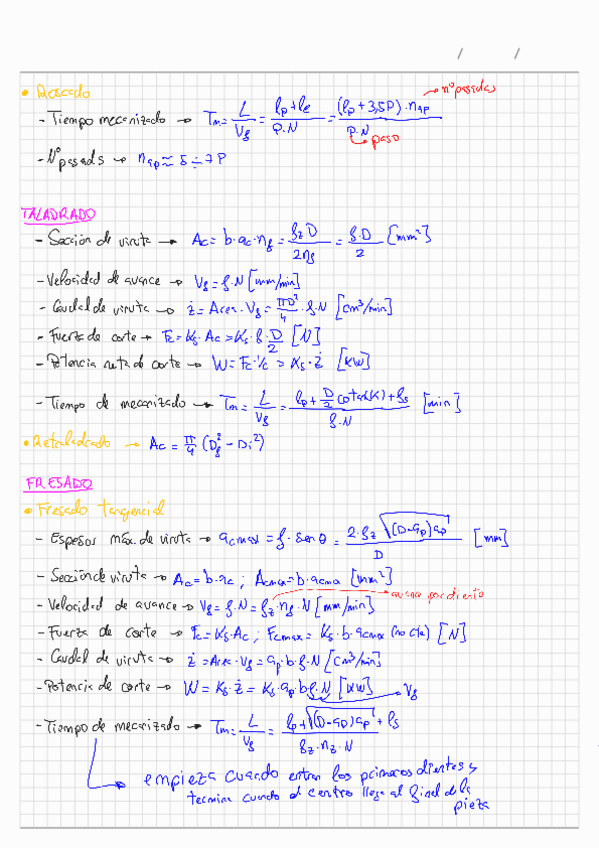 / /
• Roscado
→ nº pasadas
- Tiempo mecanizado → Tm = L/Vf = (lp + le)/(P·N) = ((lp + 3,5P)·nap)/(P·N)
→ paso
- Nº pasads → nap ≈ 5 ÷ 7 P
TALADRADO
- Sección de viruta → Ac = b·ac·nf = (fz D)/(2nf) = (f·D)/2 [mm²]
- Velocidad de avance → Vf = f·N [mm/min]
- Caudal de viruta → ż = Area·Vf = (πD²/4)·f·N [cm³/min]
- Fuerza de corte → Fc = Ks·Ac = Ks·f·D/2 [N]
- Potencia neta de corte → W = Fc·Vc = Ks·ż [KW]
- Tiempo de mecanizado → Tm = L/Vf = (lp + D/2 cotan(K) + ls)/(f·N) [min]
• Retaladrado → Ac = π/4 (Df² - Di²)
FRESADO
• Fresado tangencial
- Espesor máx. de viruta → acmax = f·senθ = (2·fz √((D-ap)ap))/D [mm]
- Sección de viruta → Ac = b·ac ; Acmax = b·acma [mm²]
- Velocidad de avance → Vf = f·N = fz·nf·N [mm/min] → avance por diente
- Fuerza de corte → Fc = Ks·Ac ; Fcmax = Ks·b·acmax (no cte) [N]
- Caudal de viruta → ż = Area·Vf = ap·b·f·N [cm³/min]
- Potencia de corte → W = Ks·ż = Ks·ap·b·f·N [KW] → Vf
- Tiempo de mecanizado → Tm = L/Vf = (lp + √((D-ap)ap) + ls)/(fz·nz·N)
empieza cuando entran los primeros dientes y
termina cuando el centro llega al final de la
pieza